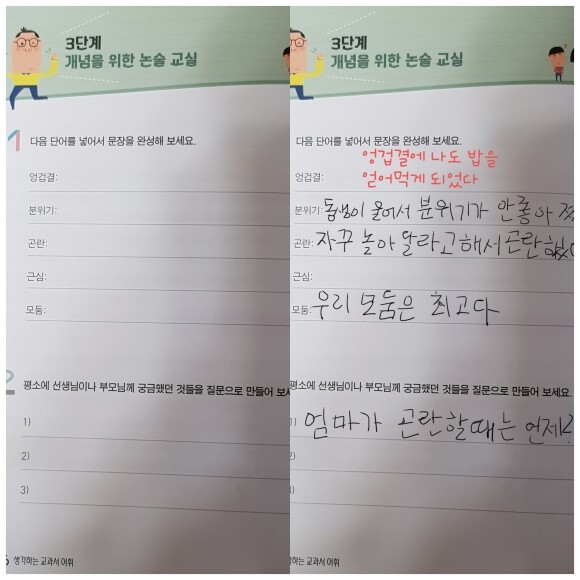 3단계
개념을 위한 논술 교실
1 다음 단어를 넣어서 문장을 완성해 보세요.
엉겁결:
분위기:
곤란:
근심:
모둠:
2 평소에 선생님이나 부모님께 궁금했던 것들을 질문으로 만들어 보세
1)
2)
3)
6 생각하는 교과서 어휘
3단계
개념을 위한 논술 교실
다음 단어를 넣어서 문장을 완성해 보세요.
엉겁결에 나도 밥을
엉겁결: 얻어먹게 되었다
분위기: 동생이 울어서 분위기가 안좋아
곤란: 자꾸 놀아 달라고해서 곤란했
근심:
모둠: 우리 모둠은 최고다
평소에 선생님이나 부모님께 궁금했던 것들을 질문으로 만들어 보세요.
1) 엄마가 곤란할때는 언제?
2)
3)
생각하는 교과서 어휘